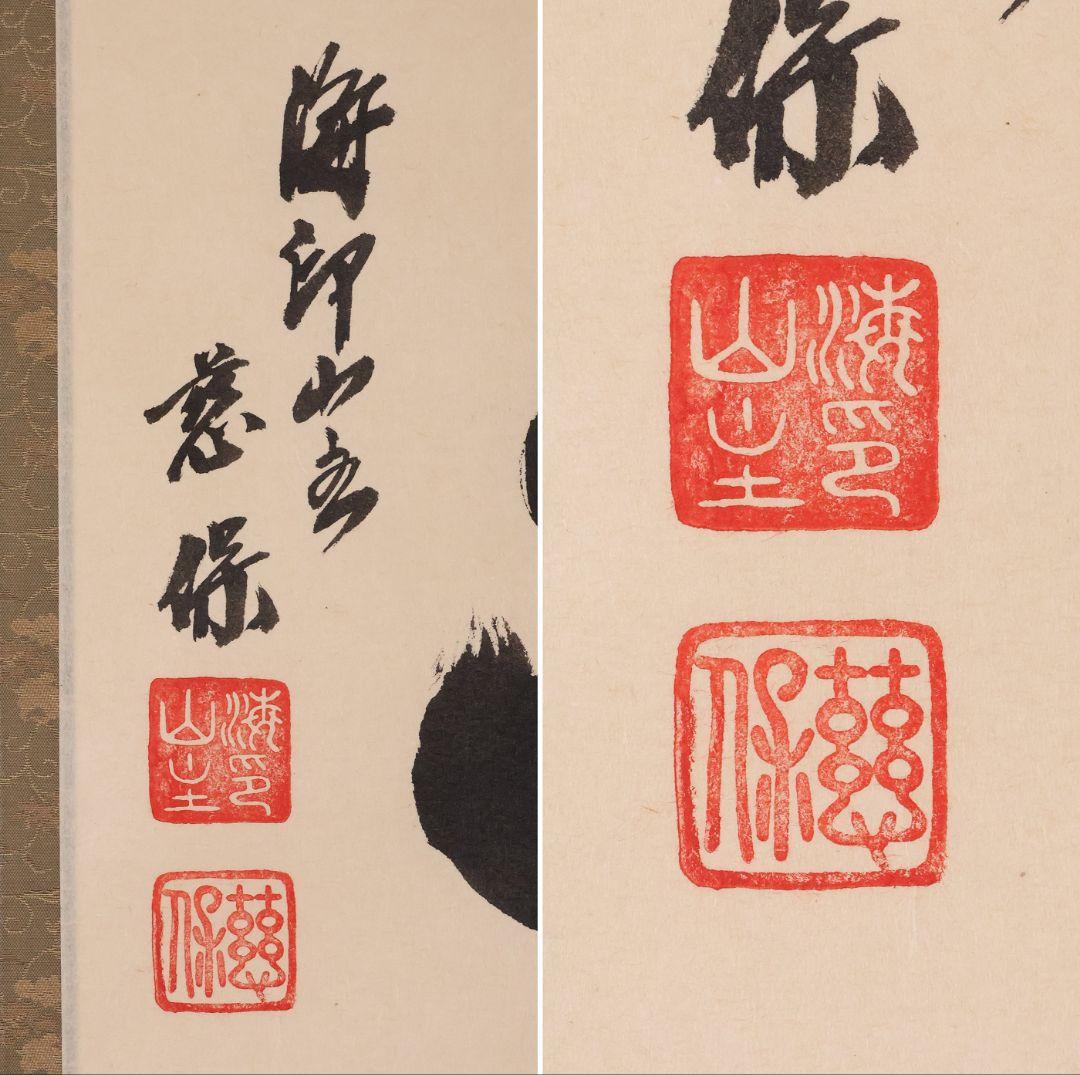 海印山
慈保
海印
山主
慈保
保
海印
山主
慈保